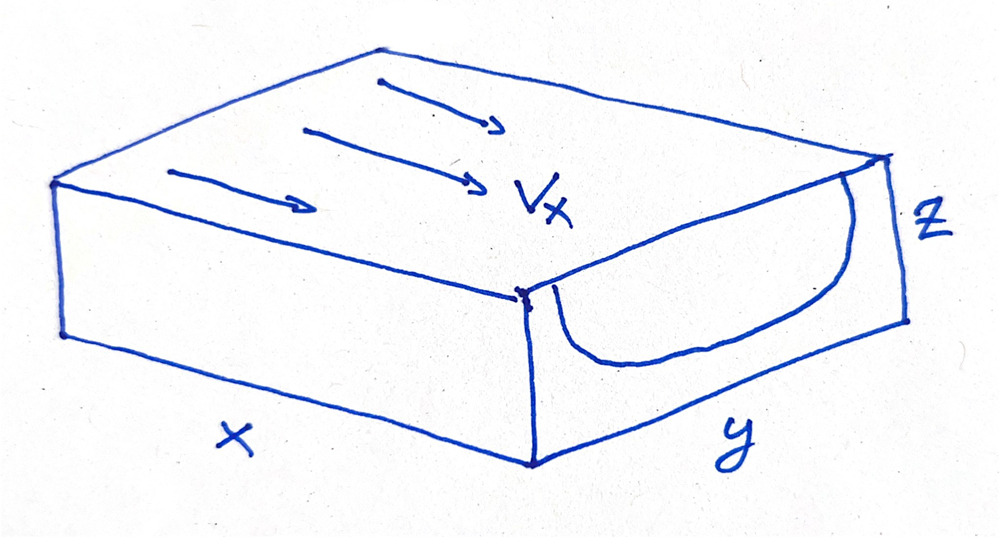 Vx
z
x
y